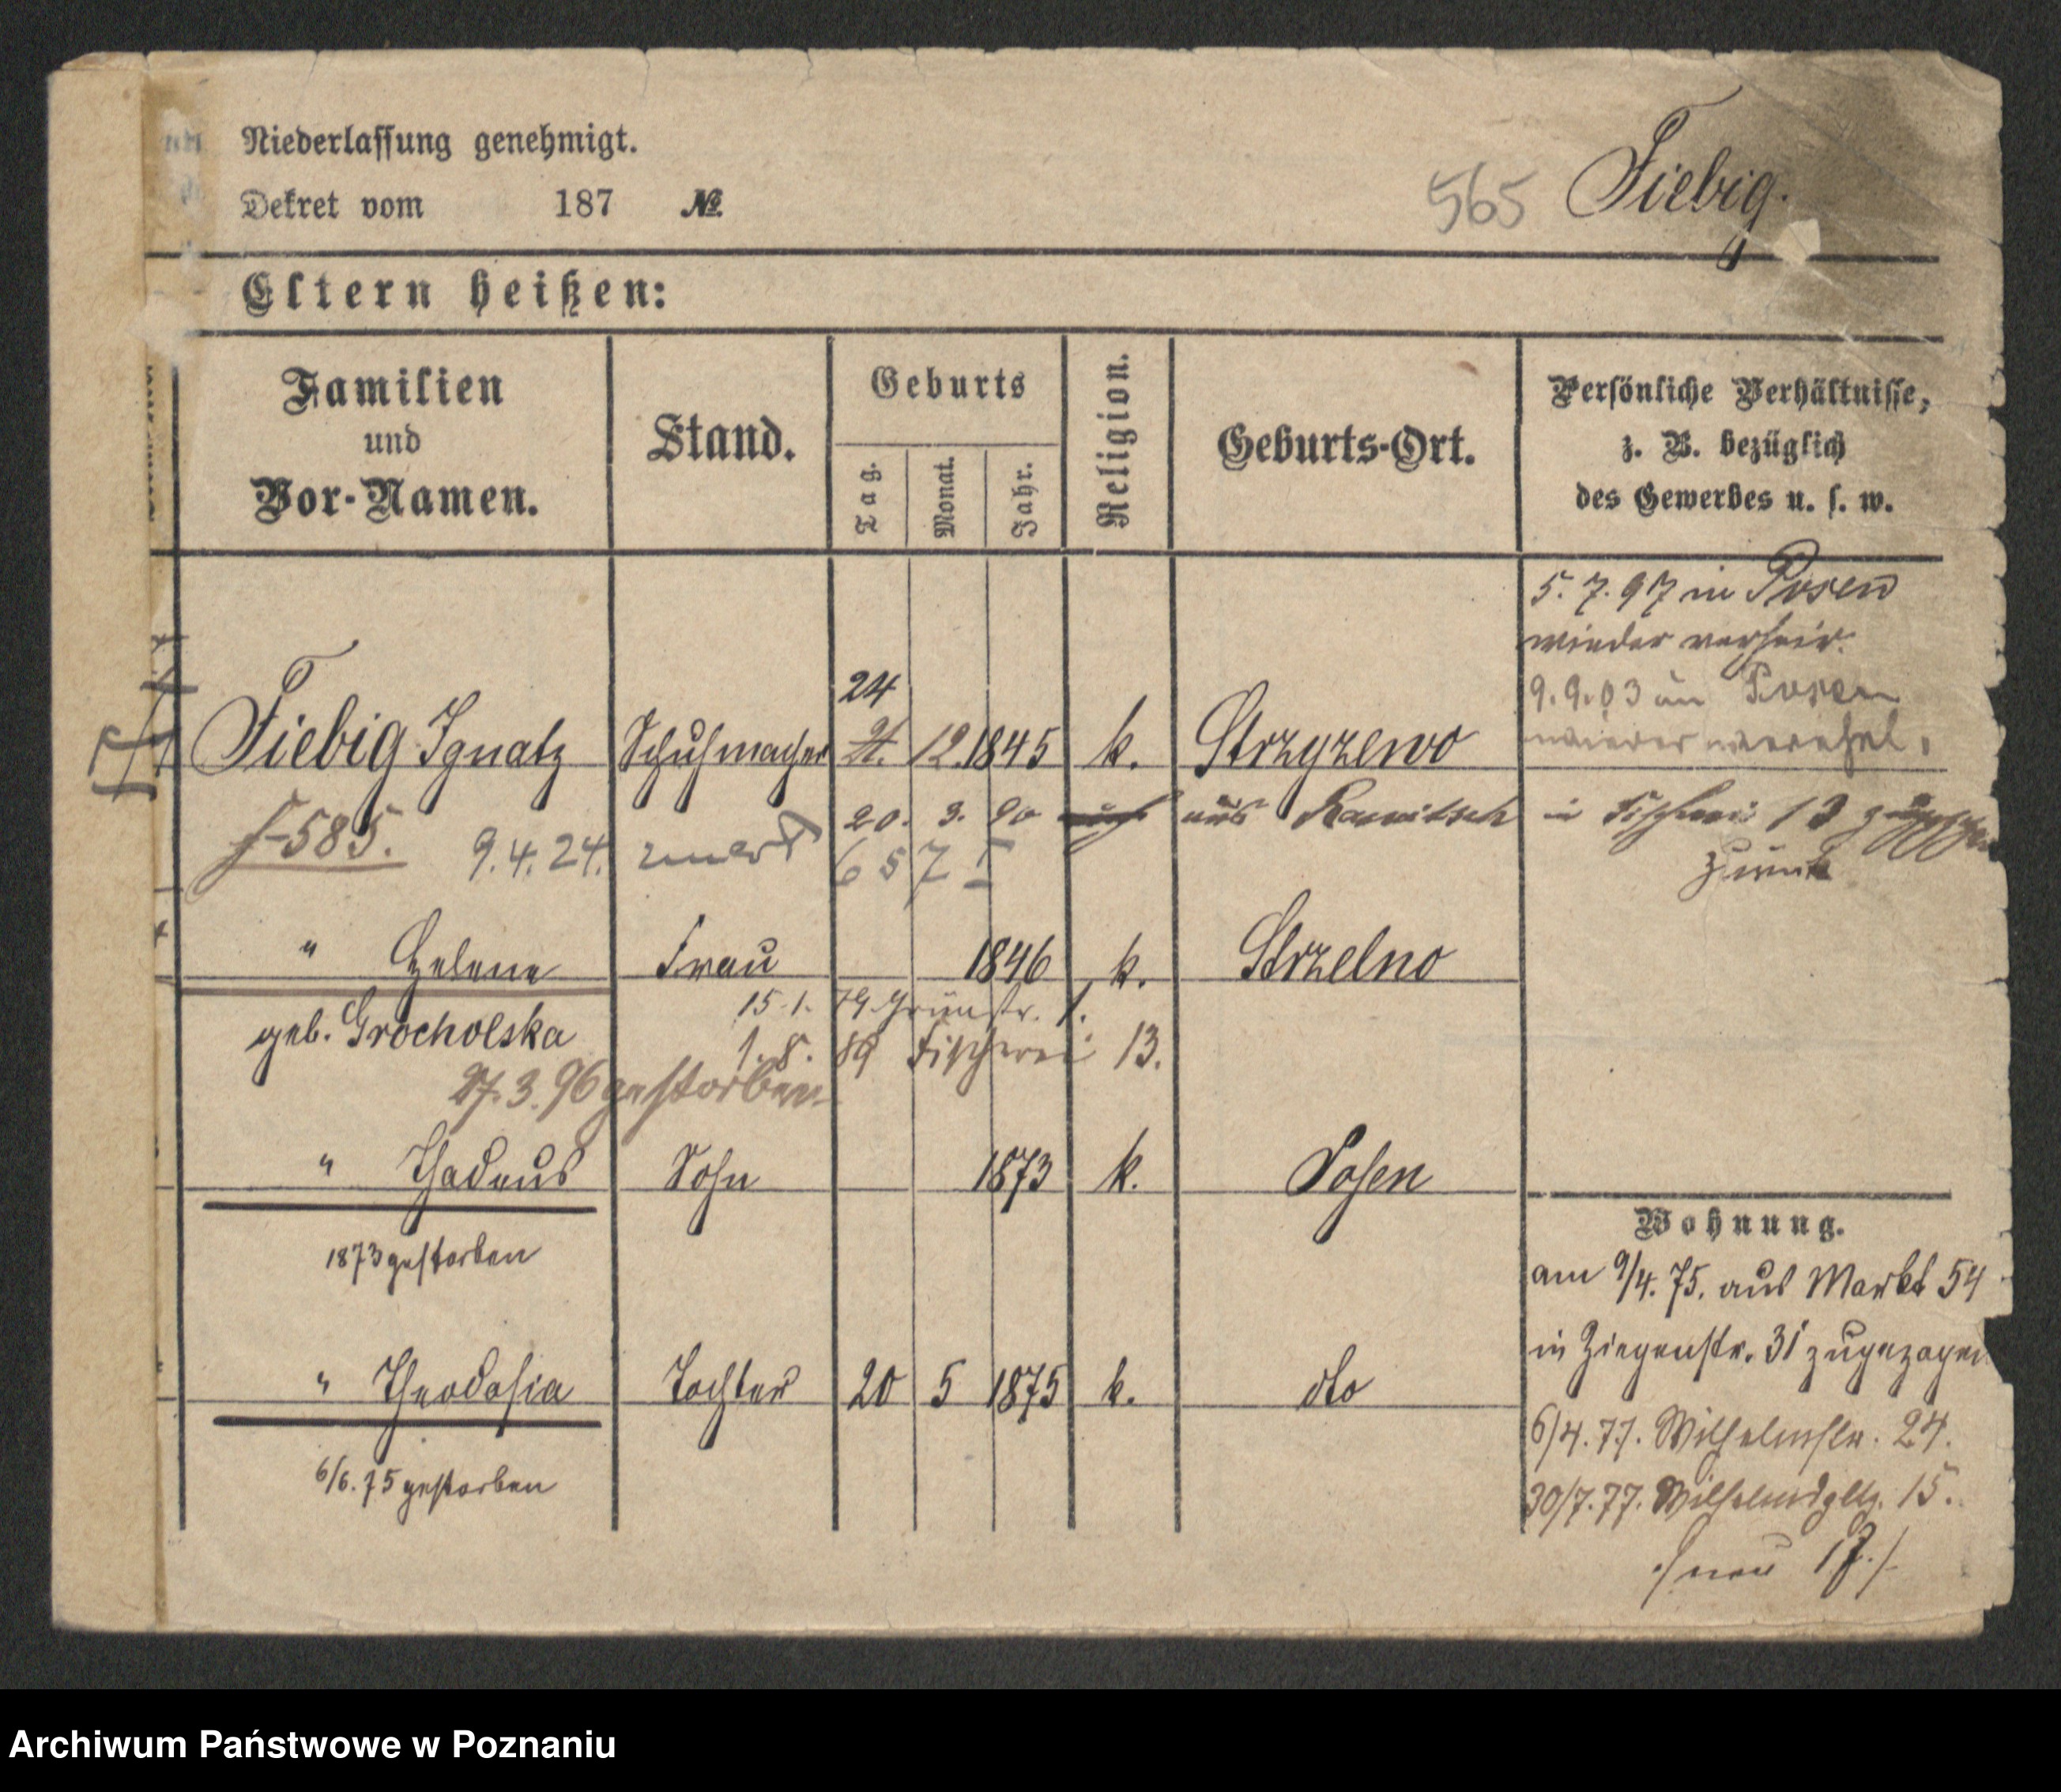 Niederlassung genehmigt.
Dekret vom 187 №
565 Fiebig.
Eltern heißen:
Familien
und
Vor-Namen.
Stand.
Geburts
Tag.
Monat.
Jahr.
Religion.
Geburts-Ort.
Persönliche Verhältnisse,
z. B. bezüglich
des Gewerbes u. s. w.
5. 7. 97 in Posen
wieder verheir.
9. 9. 03 in Posen
wieder verehel.
24
Fiebig Ignatz Schuhmacher 12. 1845 k. Strzyzewo
20. 3. 90 aus Rawitsch in Fischerei 13
zurück
f-585. 9.4.24. 657 I
" Helene Frau 1846 k. Strzelno
geb. Grocholska
15.1. 79. Grünstr. 1.
1. 8. 89 Fischerei 13.
27. 3. 96 gestorben
" Thadeus Sohn 1873 k. Posen
1873 gestorben
" Theodosia Tochter 20 5 1875 k. dto
6/6. 75 gestorben
Wohnung.
am 9/4. 75. aus Markt 54
in Ziegenstr. 31 zugezogen
6/4. 77. Wilhelmstr. 24.
30/7. 77. Wilhelmspltz. 15.
./ neu 17./.
Archiwum Państwowe w Poznaniu